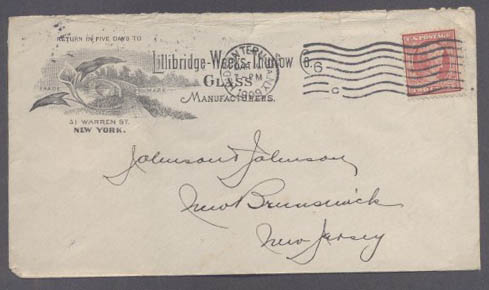 RETURN IN FIVE DAYS TO
Lillibridge-Weeks-Thurlow Co.
GLASS
MANUFACTURERS.
TRADE MARK
31 WARREN ST.
NEW YORK.
1909
6
C
U.S. POSTAGE
Johnson & Johnson
New Brunswick
New Jersey